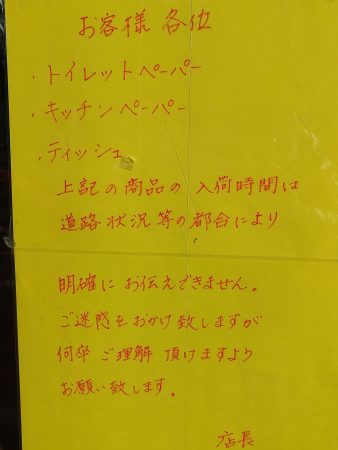 お客様 各位
・トイレットペーパー
・キッチンペーパー
・ティッシュ
上記の商品の入荷時間は
道路状況等の都合により
明確にお伝えできません。
ご迷惑をおかけ致しますが
何卒ご理解頂けますよう
お願い致します。
店長